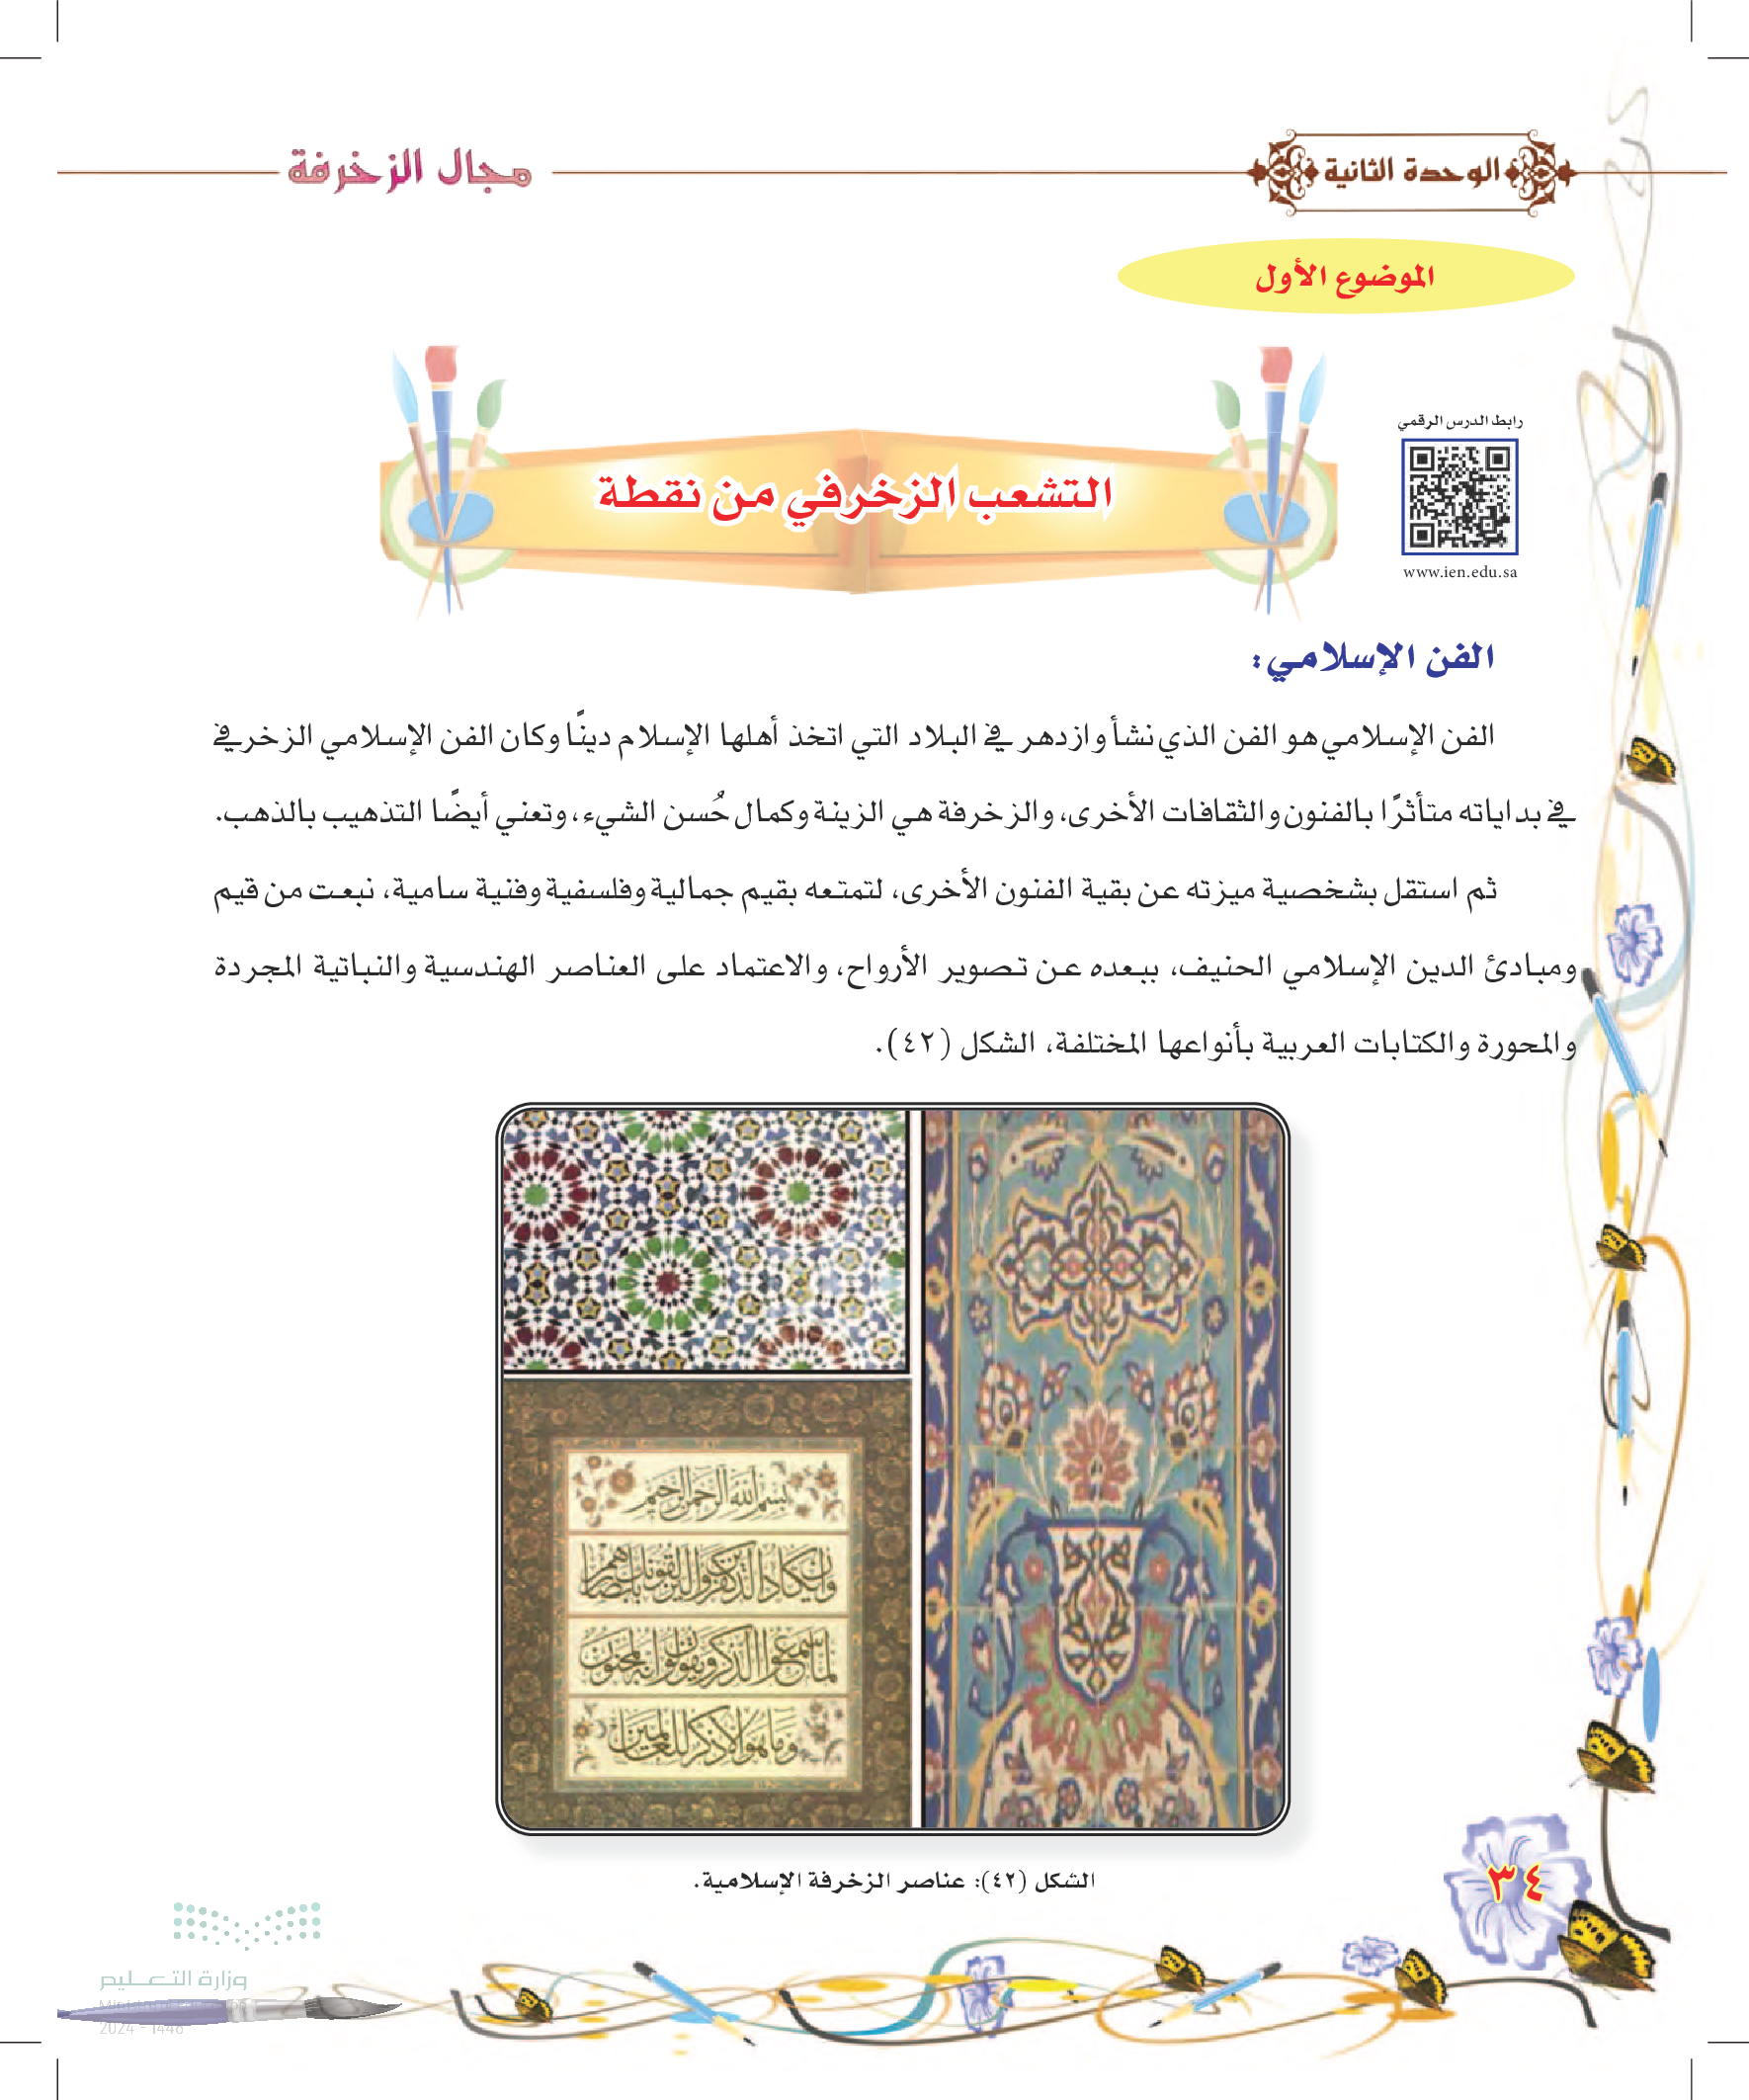 الوحدة الثانية
مجال الزخرفة
الموضوع الأول
رابط الدرس الرقمي
www.ien.edu.sa
التشعب الزخرفي من نقطة
الفن الإسلامي:
الفن الإسلامي هو الفن الذي نشأ وازدهر في البلاد التي اتخذ أهلها الإسلام دينًا وكان الفن الإسلامي الزخرفي
في بداياته متأثرًا بالفنون والثقافات الأخرى، والزخرفة هي الزينة وكمال حُسن الشيء، وتعني أيضًا التذهيب بالذهب.
ثم استقل بشخصية ميزته عن بقية الفنون الأخرى، لتمتعه بقيم جمالية وفلسفية وفنية سامية، نبعت من قيم
ومبادئ الدين الإسلامي الحنيف، ببعده عن تصوير الأرواح، والاعتماد على العناصر الهندسية والنباتية المجردة
والمحورة والكتابات العربية بأنواعها المختلفة، الشكل (٤٢).
بسم الله الرحمن الرحيم
وإن يكاد الذين كفروا ليزلقونك بأبصارهم
لما سمعوا الذكر ويقولون إنه لمجنون
وما هو إلا ذكر للعالمين
الشكل (٤٢): عناصر الزخرفة الإسلامية.
٣٤
وزارة التعليم
2024 - 1446